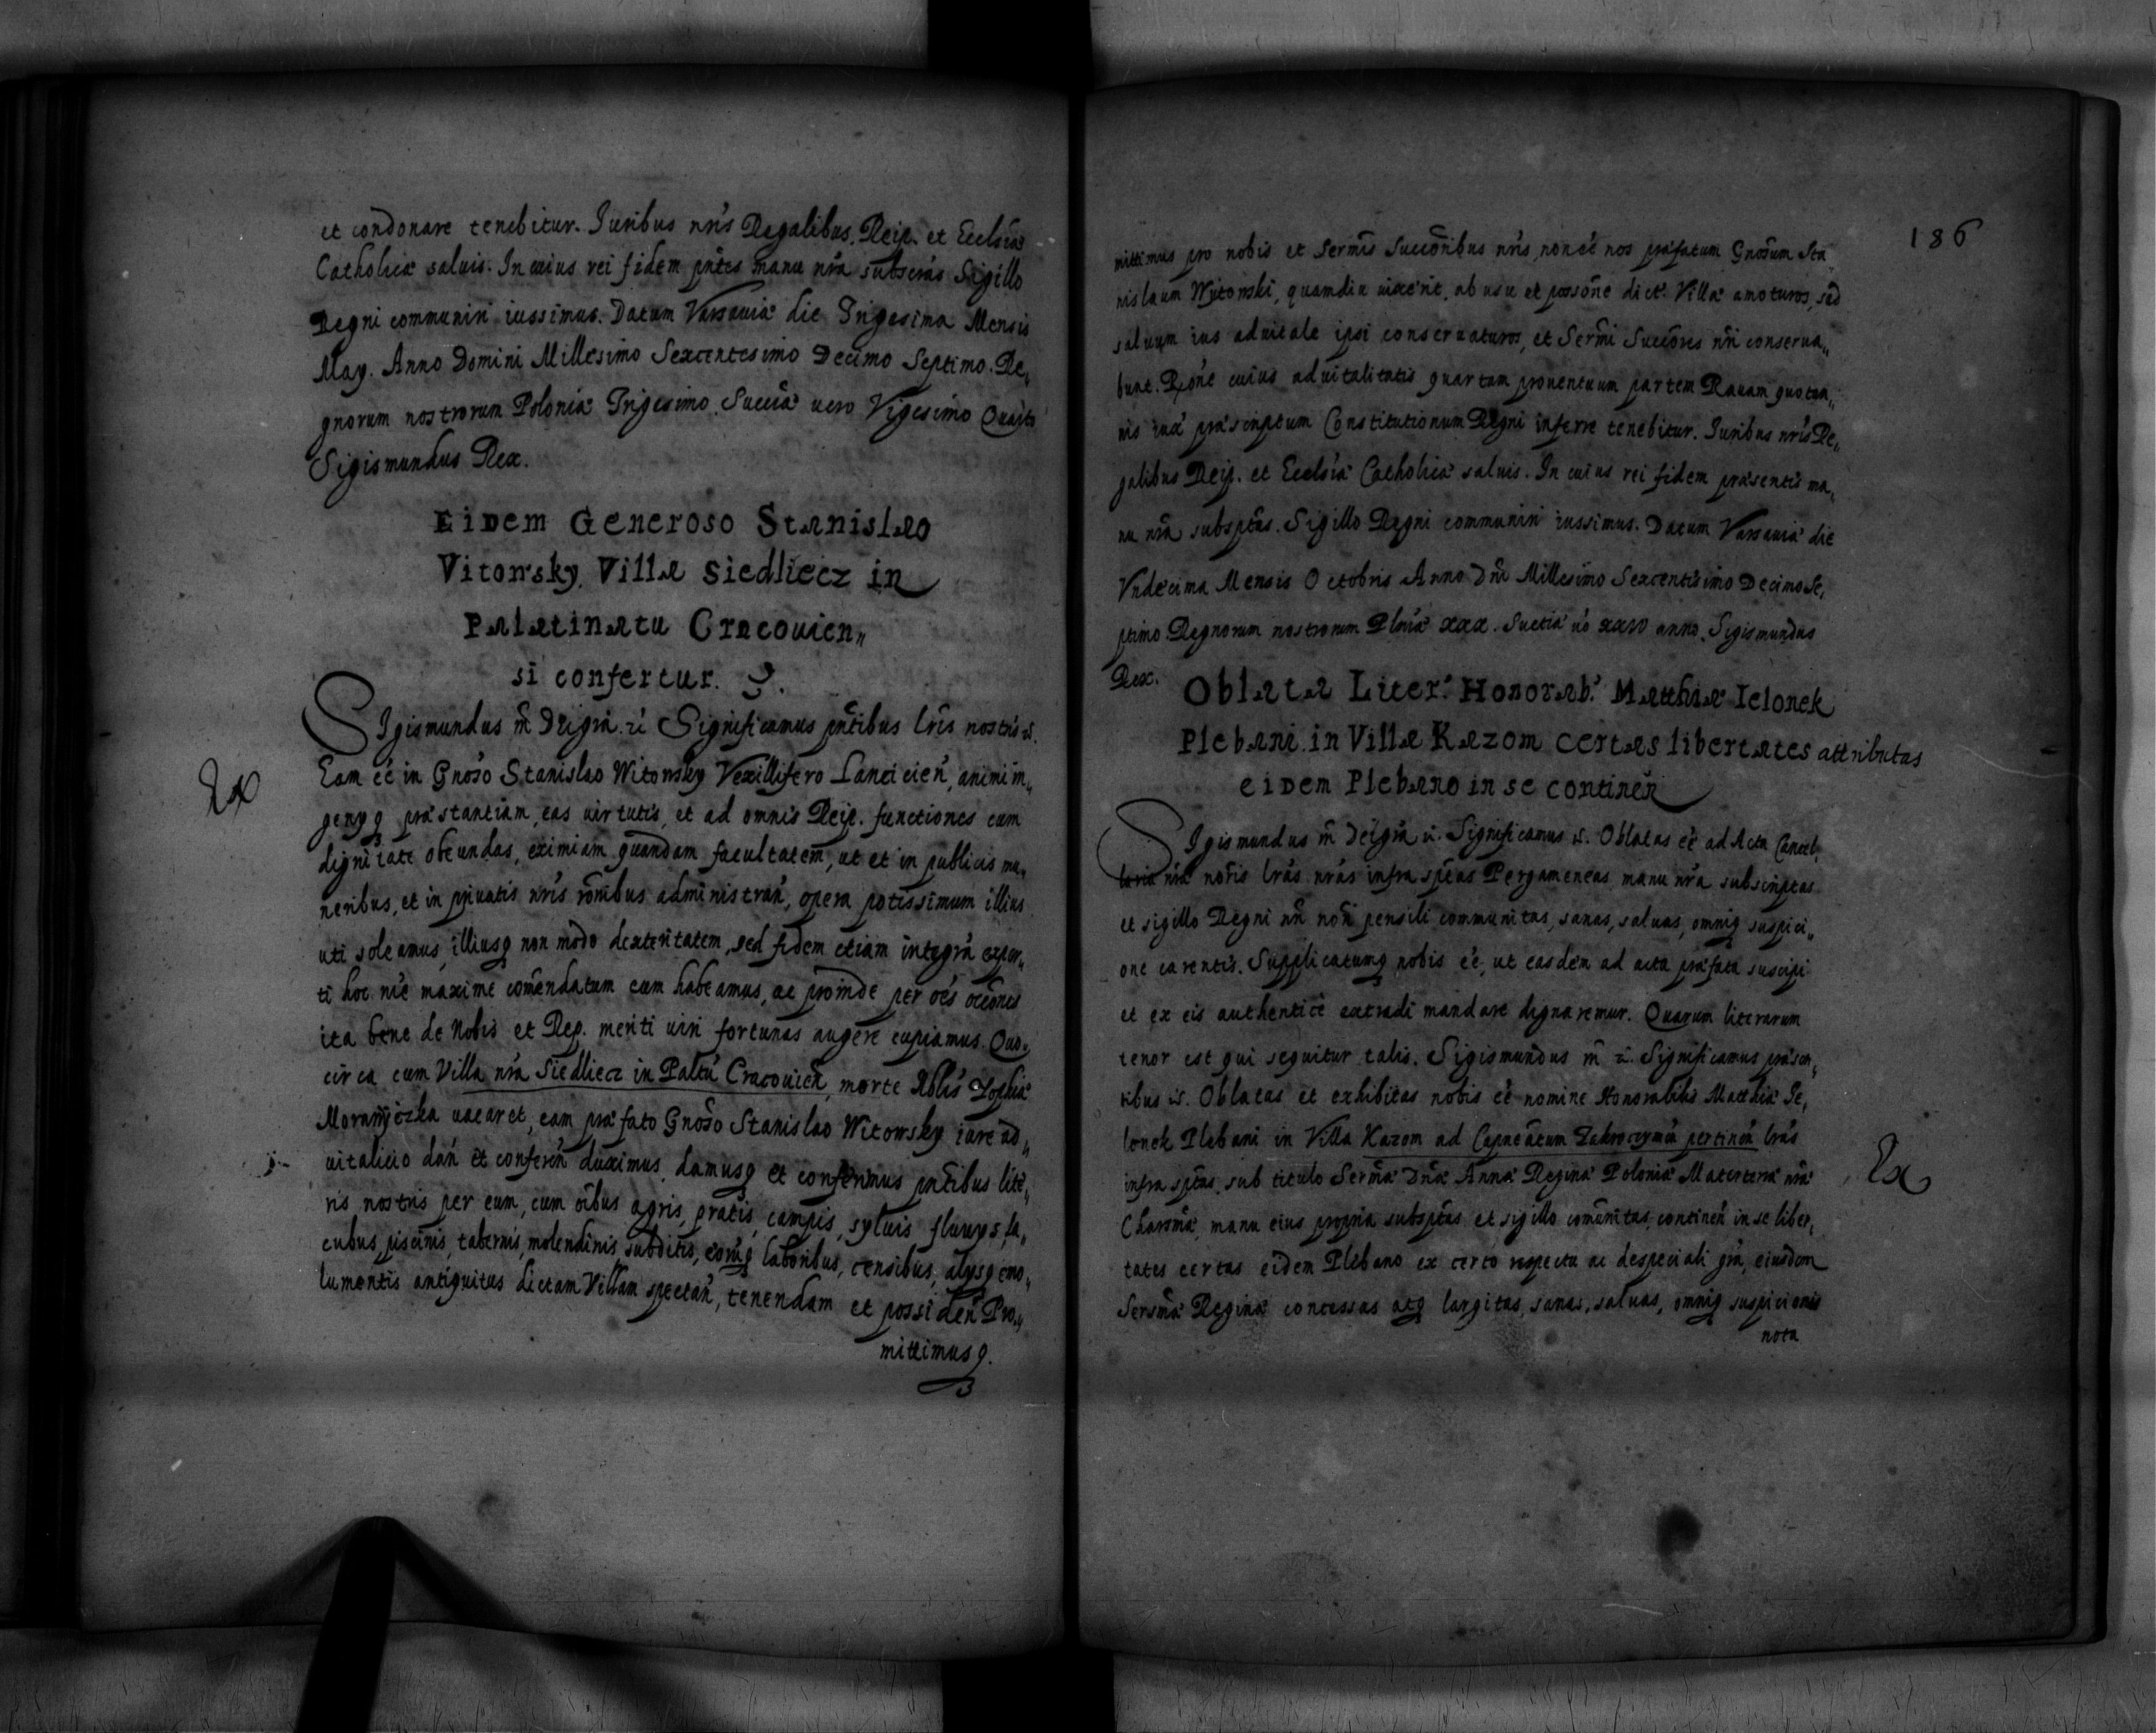 et condonare tenebitur. Iuribus nr̃is Regalibus, Reip. et Ecclsiæ
Catholicæ saluis. In cuius rei fidem pñtes manu nr̃a subscràs Sigillo
Regni communiri iussimus. Datum Varsauiæ die Trigesima Mensis
May. Anno Domini Millesimo Sexcentesimo Decimo Septimo. Re„
gnorum nostrorum Poloniæ Trigesimo. Sueciæ uero Vigesimo Quarto
Sigismundus Rex.
Eidem Generoso Stanislao
Vitowsky Villa Siedliecz in
Palatinatu Cracouien„
si confertur.
Sigismundus m̃ Dei grã. Significamus pñtibus lr̃is nostris
Ex
Eam eẽ in Gnoso Stanislao Witowsky Vexillifero Lancicien̄, animi in„
genyq præstantiam, eas uirtutis, et ad omnis Reip. functiones cum
dignitate obeundas, eximiam quandam facultatem, ut et in publicis mu„
neribus, et in priuatis nr̃is rõnibus administran̄, opera potissimum illius
uti soleamus, illiusq non modo dexteritatem, sed fidem etiam integrã exper„
ti hoc maxime com̃endatum cum habeamus, ac proinde per oẽs occones
ita bene de Nobis et Rep. meriti uiri fortunas augere cupiamus. Quo„
circa cum Villa nr̃a Siedliecz in Paltu Cracouien̄, morte Nblis Zophiæ
uacaret, eam præfato Gnoso Stanislao Witowsky iure ad„
uitalicio dan̄ et conferen̄ duximus, damusq et conferimus pñtibus lite„
ris nostris per eum, cum oĩbus agris, pratis, campis, syluis, fluuys, la„
cubus, piscinis, tabernis, molendinis, subditis, eorũq laboribus, censibus, alysq emo„
lumentis antiquitus dictam Villam spectan̄, tenendam et possiden̄ Pro„
mittimusq.
186
mittimus pro nobis et Sermis Succoribus nr̃is, non eẽ nos præfatum Gnosum Sta
nislaum Wytowski, quamdiu uixerit, ab usu et possone dict. Villæ amoturos, sed
saluum ius aduitale ipsi conseruaturos, et Sermi Succores nr̃i conserua„
bunt. Rõne cuius aduitalitatis quartam prouentuum partem Rauam quotan„
nis iuxa præscriptum Constitutionum Regni inferre tenebitur. Iuribus nr̃is Re„
galibus Reip. et Ecclsiæ Catholicæ saluis. In cuius rei fidem præsentis ma„
nu nr̃a subsptas. Sigillo Regni communiri iussimus. Datum Varsauiæ die
Vndecima Mensis Octobris Anno Dñi Millesimo Sexcentesimo Decimo Se„
ptimo. Regnorum nostrorum Plniæ XXX. Suetiæ uo XXIV anno. Sigismundus
Rex.
Oblata Liter. Honorab. Matthiæ Ielonek
Plebani in Villa Kazom certas libertates attributas
eidem Plebano in se continen̄
Sigismundus m̃ Dei grã. Significamus. Oblatas eẽ ad Acta Cancel„
lariæ nr̃æ lr̃as nr̃as infra sptas Pergameneas manu nr̃a subscriptas
et sigillo Regni nr̃i pensili communitas, sanas, saluas, omniq suspici„
one carentis. Supplicatumq nobis eẽ, ut easdem ad acta præfata suscipi
et ex eis authentice extradi mandare dignaremur. Quarum literarum
tenor est qui sequitur talis. Sigismundus m̃. Significamus præsen„
tibus. Oblatas et exhibitas nobis eẽ nomine Honorabilis Matthiæ Ie„
lonek Plebani in Villa Kazom ad Capneatum Zakroczymen̄ pertinen̄ lr̃as
Ex
infra sptas, sub titulo Sermæ Dnæ Annæ Reginæ Poloniæ Materteræ nr̃æ
Charmæ, manu eius propria subsptas et sigillo com̃unitas, continen̄ in se liber„
tates certas eidem Plebano ex certo respectu ac de speciali grã, eiusdem
Sersmæ Reginæ concessas atq largitas, sanas, saluas, omniq suspicionis
nota